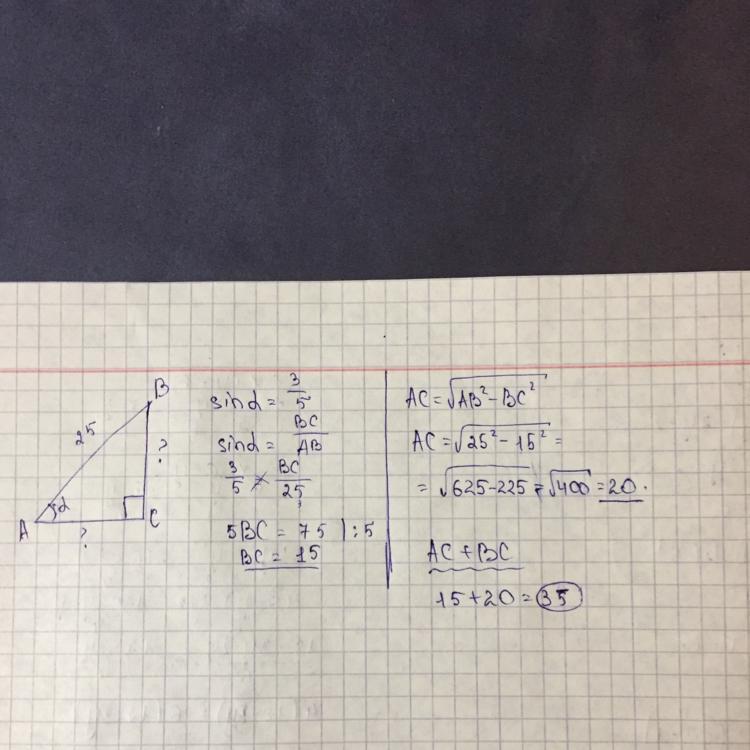 B
25
?
A
α
C
?
sinα = 3/5
sinα = BC/AB
3/5 × BC/25
5BC = 75 | : 5
BC = 15
AC = √AB² - BC²
AC = √25² - 15² =
= √625 - 225 = √400 = 20.
AC + BC
15 + 20 = 35